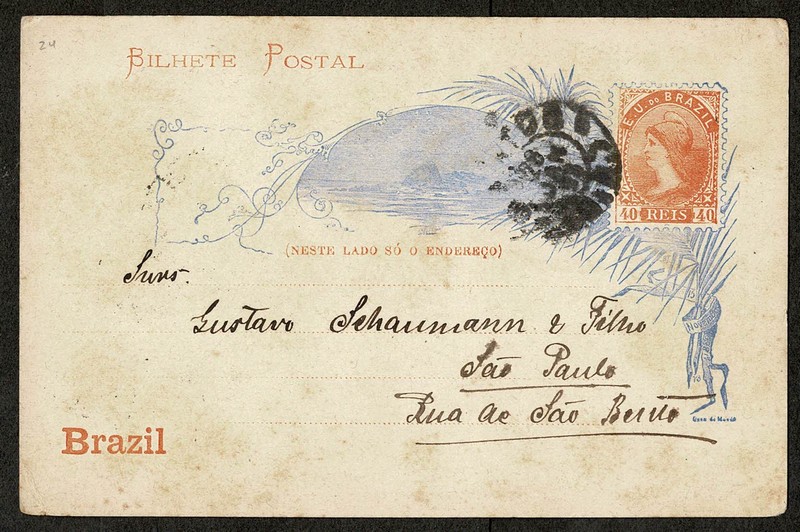 24
BILHETE POSTAL
E. U. DO BRAZIL
40 REIS 40
(NESTE LADO SÓ O ENDEREÇO)
Snrs.
Gustavo Schaumann & Filho
São Paulo
Rua de São Bento
Casa da Moeda
Brazil